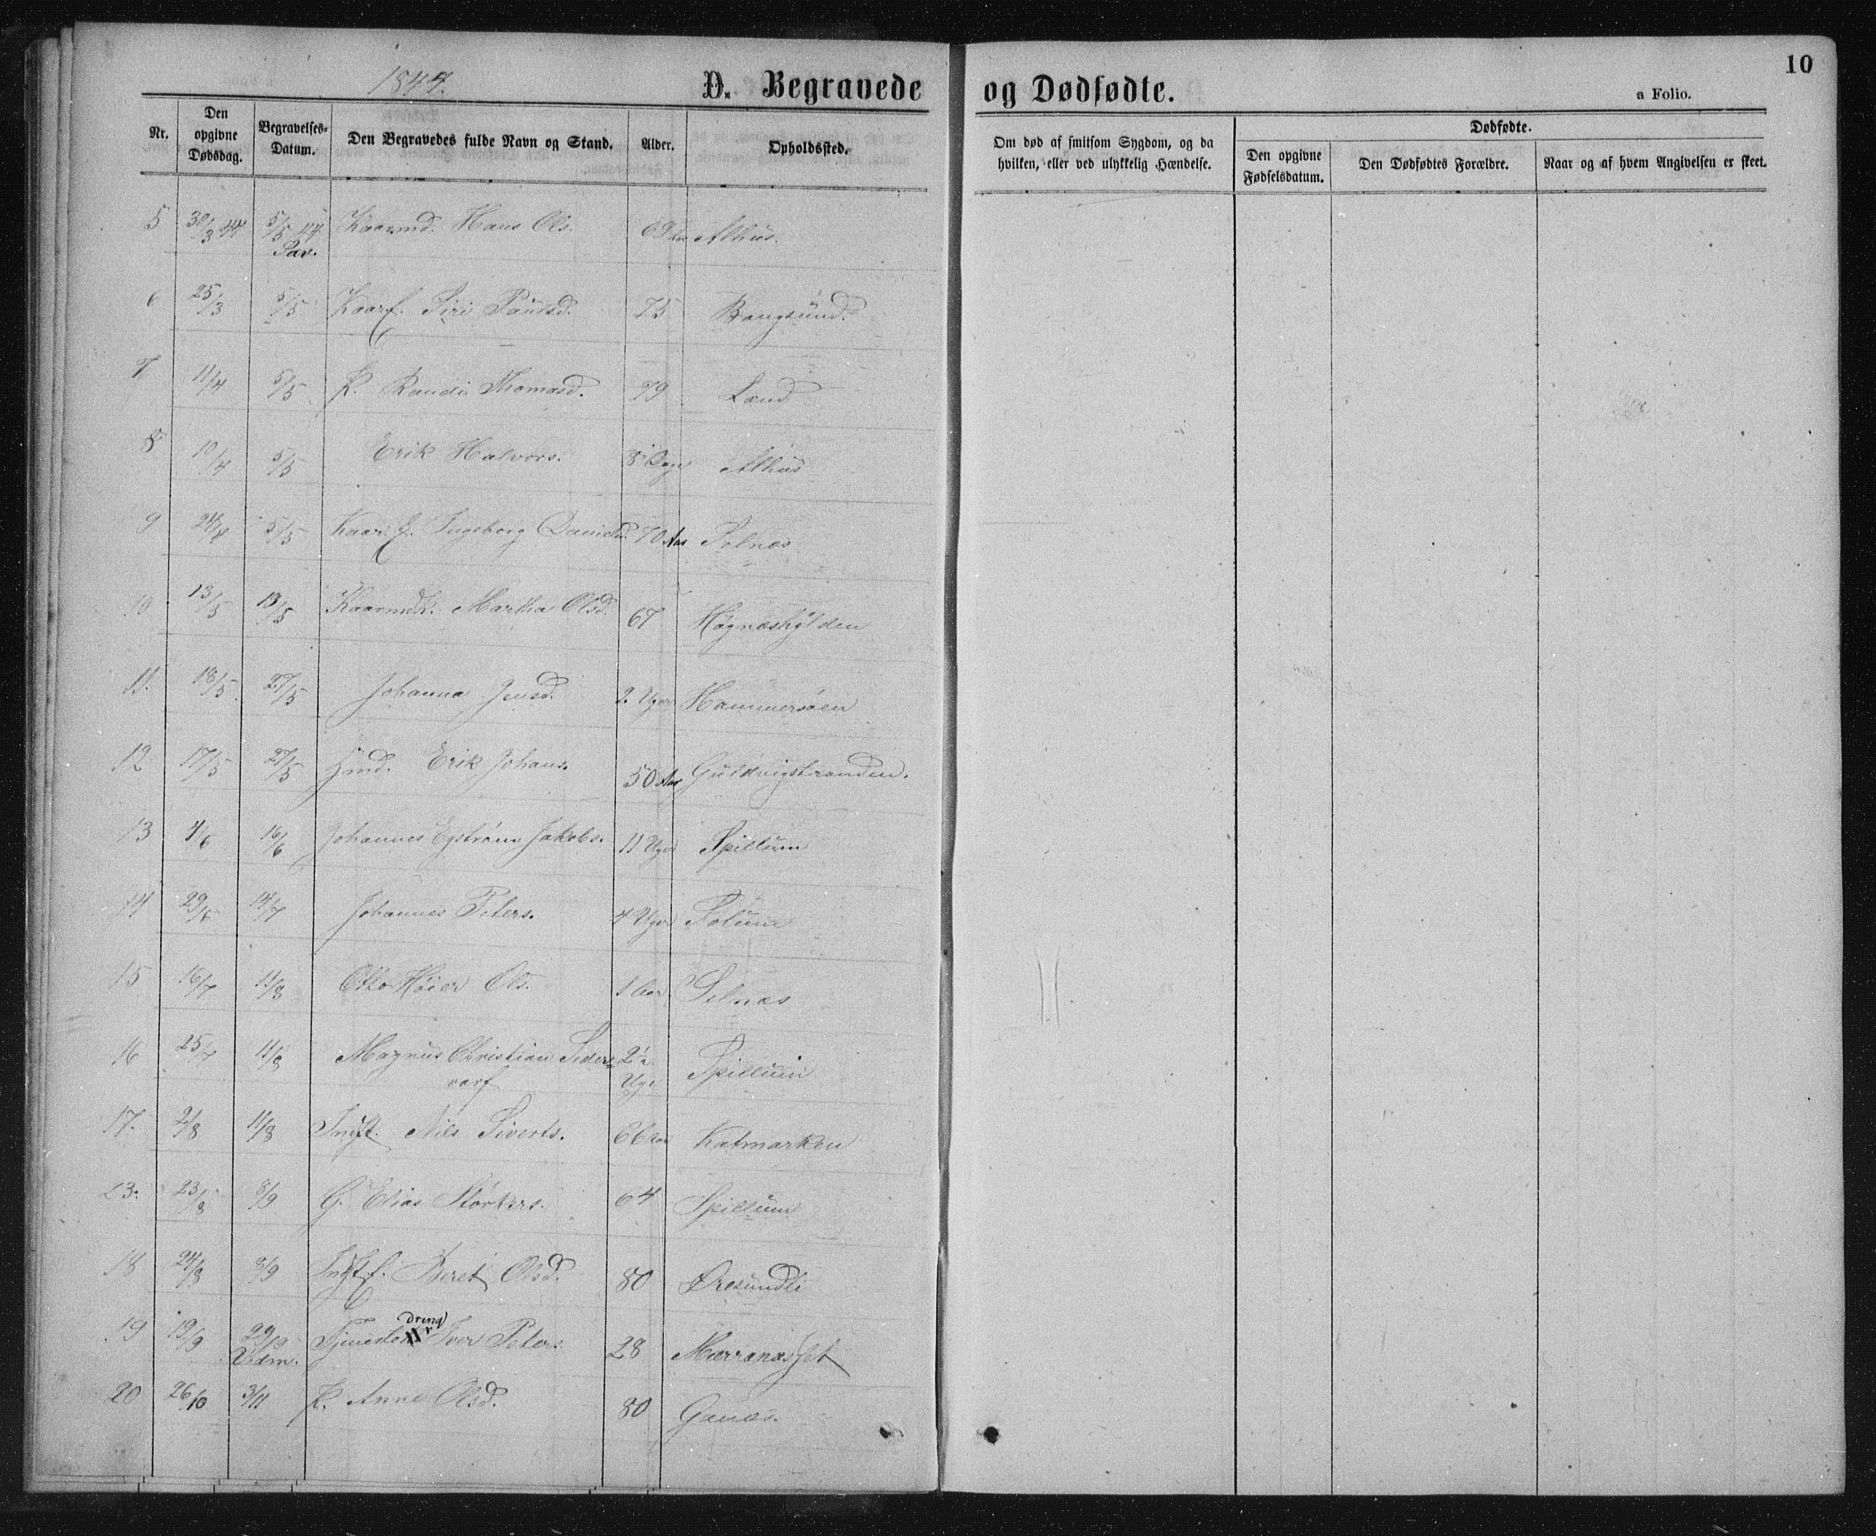 1844.
D. Begravede og Dødfødte.
10
a Folio.
Nr.
Den opgivne Dødsdag.
Begravelses-Datum.
Den Begravedes fulde Navn og Stand.
Alder.
Opholdssted.
Om død af smitsom Sygdom, og da hvilken, eller ved ulykkelig Hændelse.
Dødfødte.
Den opgivne Fødselsdatum.
Den Dødfødtes Forældre.
Naar og af hvem Angivelsen er skeet.
5 30/3 44 5/5 44 Kaarmd. Hans Ols. 69 Aar Alhus.
Pav.
6 25/3 5/5 Kaarf. Siri Paulsd. 75 Bangsund.
7 11/4 5/5 K. Randi Thomasd. 79 Land
8 10/4 5/5 Erik Halvors. 8 Dage Alhus
9 24/4 5/5 Kaar.f. Ingeborg Danielsd. 70 Aar Solnæs
10 13/5 13/5 Kaarmdk. Martha Olsd. 67 Høgneshylden
11. 18/5 27/5 Johanna Jensd. 2 Uger Hammersøen
12 17/5 27/5 Hmd. Erik Johans. 50 Aar Guldvigstranden.
13 4/6 16/6 Johannes Egstrøm Jakobs. 11 Uger Spillum
14 29/6 14/7 Johannes Peters. 4 Uger Solum
15 16/7 11/8 Otto Høier Ols. 1 Aar Selnæs
16 25/7 11/8 Magnus Christian 2½ Uge Spillum
17. 2/8 11/8 Indst. Nils Siverts. 66 Aar Katmarken
23. 23/8 8/9 G. Elias Størkers. 64 Spillum
18 24/8 8/9 Indst.f. Beret Olsd. 80 Øresundli
dreng
19 19/9 29/9 Tjeneste Iver Peters. 28 Mærranæsset
20 26/10 3/11 K. Anne Olsd. 80 Ganæs.